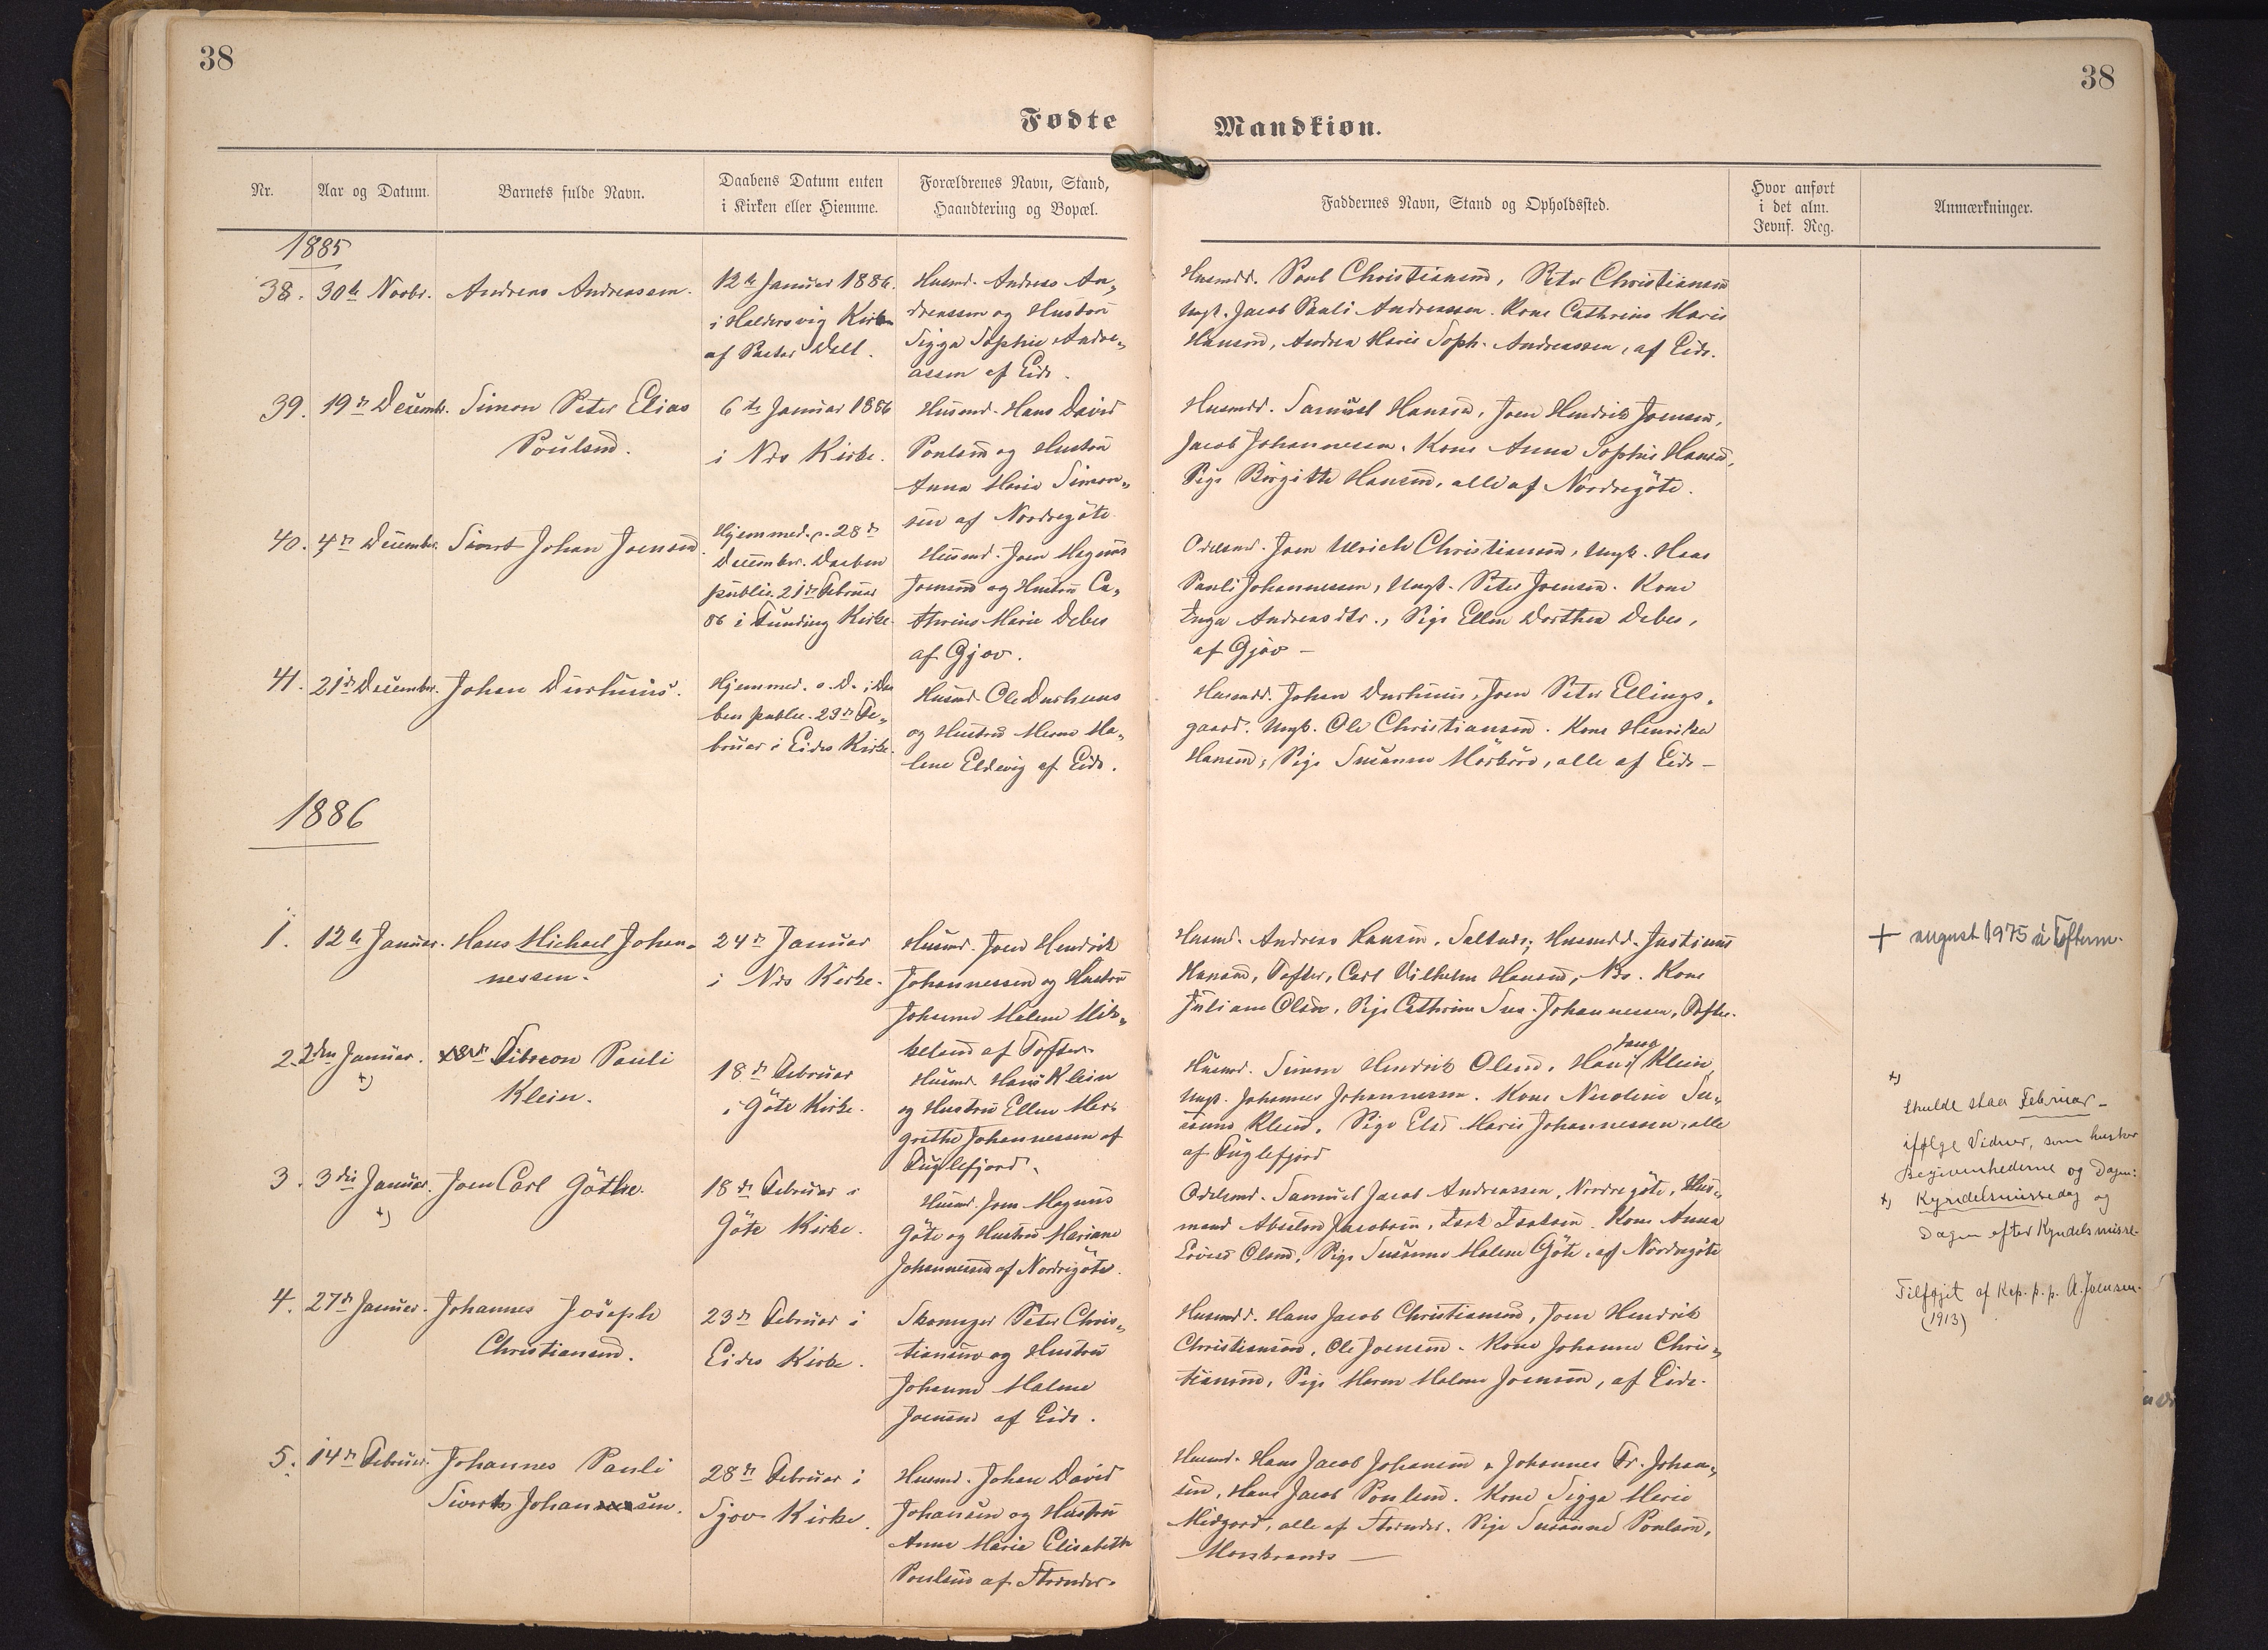 38
38
Fødte
Mandkiøn.
Nr.
Aar og Datum.
Barnets fulde Navn.
Daabens Datum enten
i Kirken eller Hiemme.
Forældrenes Navn, Stand,
Haandtering og Bopæl.
Faddernes Navn, Stand og Opholdssted.
Hvor anført
i det alm.
Jevnf. Reg.
Anmærkninger.
1885
38. 30te Novbr. Andreas Andreassen.
12te Januar 1886.
i Haldersvig Kirke
af Pastor Dall.
Husmd. Andreas An-
dreassen og Hustru
Sigga Sophie Andre-
assen af Eide.
Husmdd. Poul Christiansen, Peter Christiansen
Ungk. Jacob Pauli Andreassen. Kone Cathrine Marie
Hansen, Andrea Marie Soph. Andreassen, af Eide.
39. 19de Decembr. Simon Peter Elias
Poulsen.
6te Januar 1886
i Næs Kirke.
Husmd. Hans David
Poulsen og Hustru
Anna Maria Simon-
sen af Nordregöte
Husmdd. Samuel Hansen, Joen Hendrik Joensen,
Jacob Johannesen. Kone Anna Sophie Hansen,
Pige Birgitte Hansen, alle af Nordregöte.
40. 4de Decembr. Sivert Johan Joensen.
Hjemmed. d. 28de
Decembr. Daaben
public. 21de Februar
86 i Funding Kirke.
Husmd. Joen Magnus
Joensen og Hustru Ca-
thrine Marie Debes
af Gjov.
Odelsmd. Joen Ulrich Christiansen, Ungk. Hans
Pauli Johannessen, Ungk. Peter Joensen. Kone
Inga Andreasdtr., Pige Ellen Dorthea Debes,
af Gjov —
41. 21de Decembr. Johan Durhuus.
Hjemmed. s. D.; Daa
ben public. 23de Fe-
bruar i Eides Kirke.
Husmd. Ole Durhuus
og Hustru Maren Ma-
lene Eldevig af Eide.
Husmdd. Johan Durhuus, Joen Peter Ellings-
gaard. Ungk. Ole Christiansen. Kone Henrikke
Hansen, Pige Susanne Mörköre, alle af Eide —
1886
1. 12te Januar. Hans Michael Johan-
nessen.
24de Januar
i Næs Kirke.
Husmd. Joen Hendrik
Johannessen og Hustru
Johanne Malene Mik-
kelsen af Tofter.
Husmd. Andreas Hansen, Saltnæs; Husmdd. Justinus
Hansen, Tofter, Carl Vilhelm Hansen, Næs. Kone
Juliane Olsen, Pige Cathrine Sus. Johannessen, Tofter.
+ august 1975 á Toftum.
2. 2den Januar. Simon Pauli
x)
Klein.
18de Februar
i Göte Kirke.
Husmd. Hans Klein
og Hustru Ellen Mar-
grethe Johannessen af
Fuglefjord.
Husmd. Simon Hendrik Olsen, Hans Klein,
Ungk. Johannes Johannessen. Kone Nicoline Su-
sanne Klein, Pige Else Marie Johannessen, alle
af Fuglefjord
x)
skulde staa Februar —
ifølge Vidner, som husker
Begivenhederne og Dagen:
x) Kyndelsmissedag og
Dagen efter Kyndelsmisse.
Tilføjet af Kap. p. p. A. Joensen.
(1913)
3. 3die Januar. Joen Carl Göthe.
x)
18de Februar i
Göte Kirke.
Husmd. Joen Magnus
Göte og Hustru Mariane
Johannessen af Nordregöte.
Odelsmd. Samuel Jacob Andreassen, Nordregöte, Hus-
mand Absalon Jacobsen, Isak Isaksen. Kone Anna
Lovise Olsen, Pige Susanne Malene Göte, af Nordregöte
4. 27de Januar. Johannes Joseph
Christiansen.
23de Februar i
Eides Kirke.
Skomager Peter Chris-
tiansen og Hustru
Johanne Malene
Joensen af Eide.
Husmdd. Hans Jacob Christiansen, Joen Hendrik
Christiansen, Ole Joensen. Kone Johanne Chris-
tiansen, Pige Maren Malene Joensen, af Eide.
5. 14de Februar. Johannes Pauli
Sivert Johansen.
28de Februar i
Sjov Kirke.
Husmd. Johan David
Johansen og Hustru
Anne Marie Elisabeth
Poulsen af Strender.
Husmd. Hans Jacob Johansen, Johannes Fr. Johan-
sen, Hans Jacob Poulsen. Kone Sigga Marie
Midgord, alle af Strender. Pige Susanne Poulsen,
Morskranes —